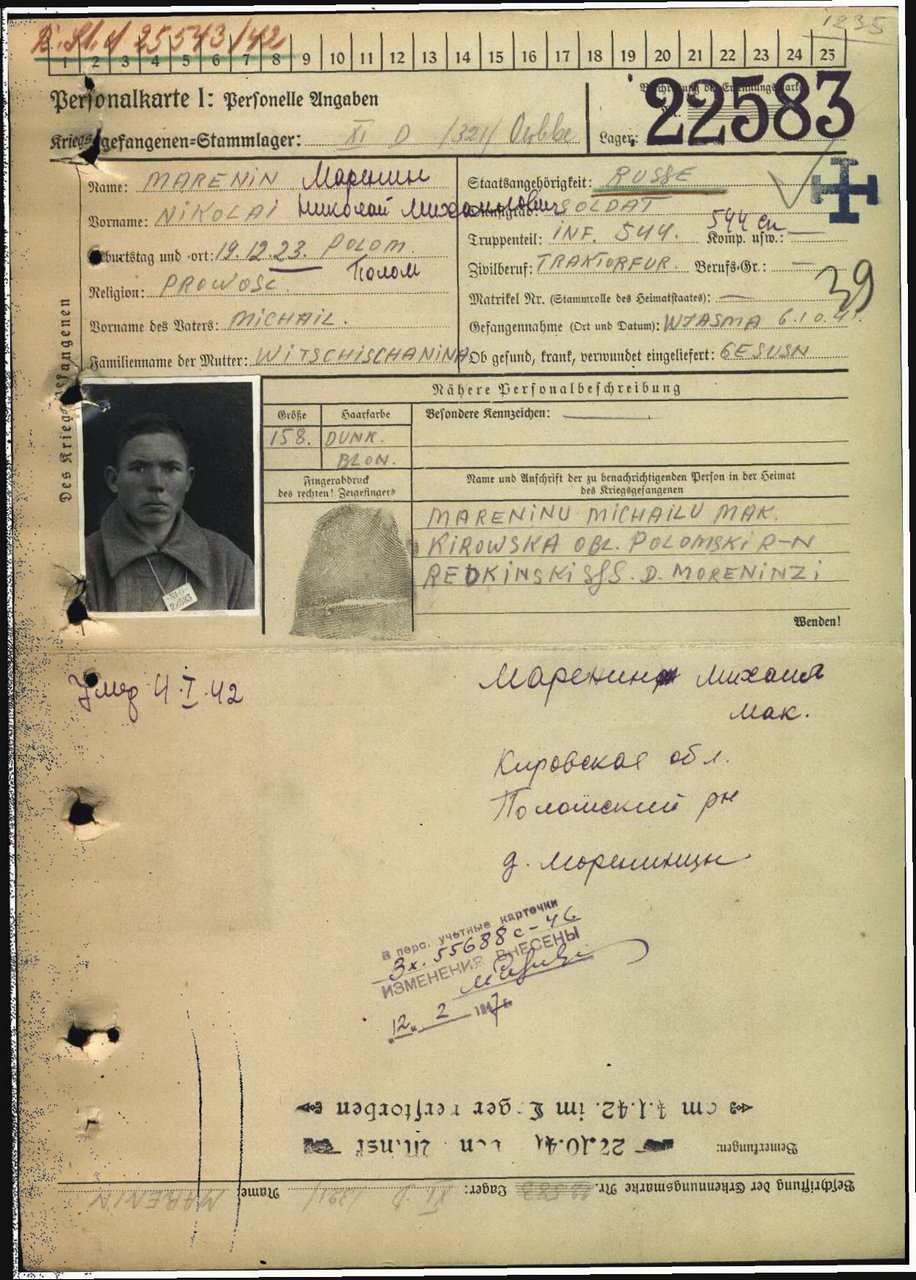 1235
25543/42
1 2 3 4 5 6 7 8 9 10 11 12 13 14 15 16 17 18 19 20 21 22 23 24 25
Personalkarte I: Personelle Angaben
Kriegsgefangenen-Stammlager: XI D /321/
Lager:
22583
Des Kriegsgefangenen
Name: MARENIN Маренин
Vorname: NIKOLAI Николай Михайлович
Geburtstag und -ort: 19.12.23. POLOM
Полом
Religion: PROWOSL.
Vorname des Vaters: MICHAIL.
Familienname der Mutter: WITSCHISCHANINA
Staatsangehörigkeit: RUSSE
Dienstgrad: SOLDAT
544 сп
Truppenteil: INF. 544. Komp. usw.: —
Zivilberuf: TRAKTORFUR. Berufs-Gr.: —
39
Matrikel Nr. (Stammrolle des Heimatstaates): —
Gefangennahme (Ort und Datum): WJASMA 6.10.41.
Ob gesund, krank, verwundet eingeliefert: GESUSN
Nähere Personalbeschreibung
Größe Haarfarbe Besondere Kennzeichen: —
158. DUNK.
BLON.
Fingerabdruck
des rechten! Zeigefingers
Name und Anschrift der zu benachrichtigenden Person in der Heimat
des Kriegsgefangenen
MARENINU MICHAILU MAK.
KIROWSKA OBL. POLOMSKI R-N
REDKINSKI S/S. D. MORENINZI
22583
Wenden!
Умер 4.I.42
Маренин Михаил
Мак.
Кировская обл.
Поломский рн
д. Моренинцы
В перс. учетные карточки
Вх. 55688с-46
ИЗМЕНЕНИЯ ВНЕСЕНЫ
12. 2 1947г.
am 4.1.42. im Lager verstorben
22.10.41
Bemerkungen:
Beschriftung der Erkennungsmarke Nr. 22583 Lager: XI D /321/ Name: MARENIN